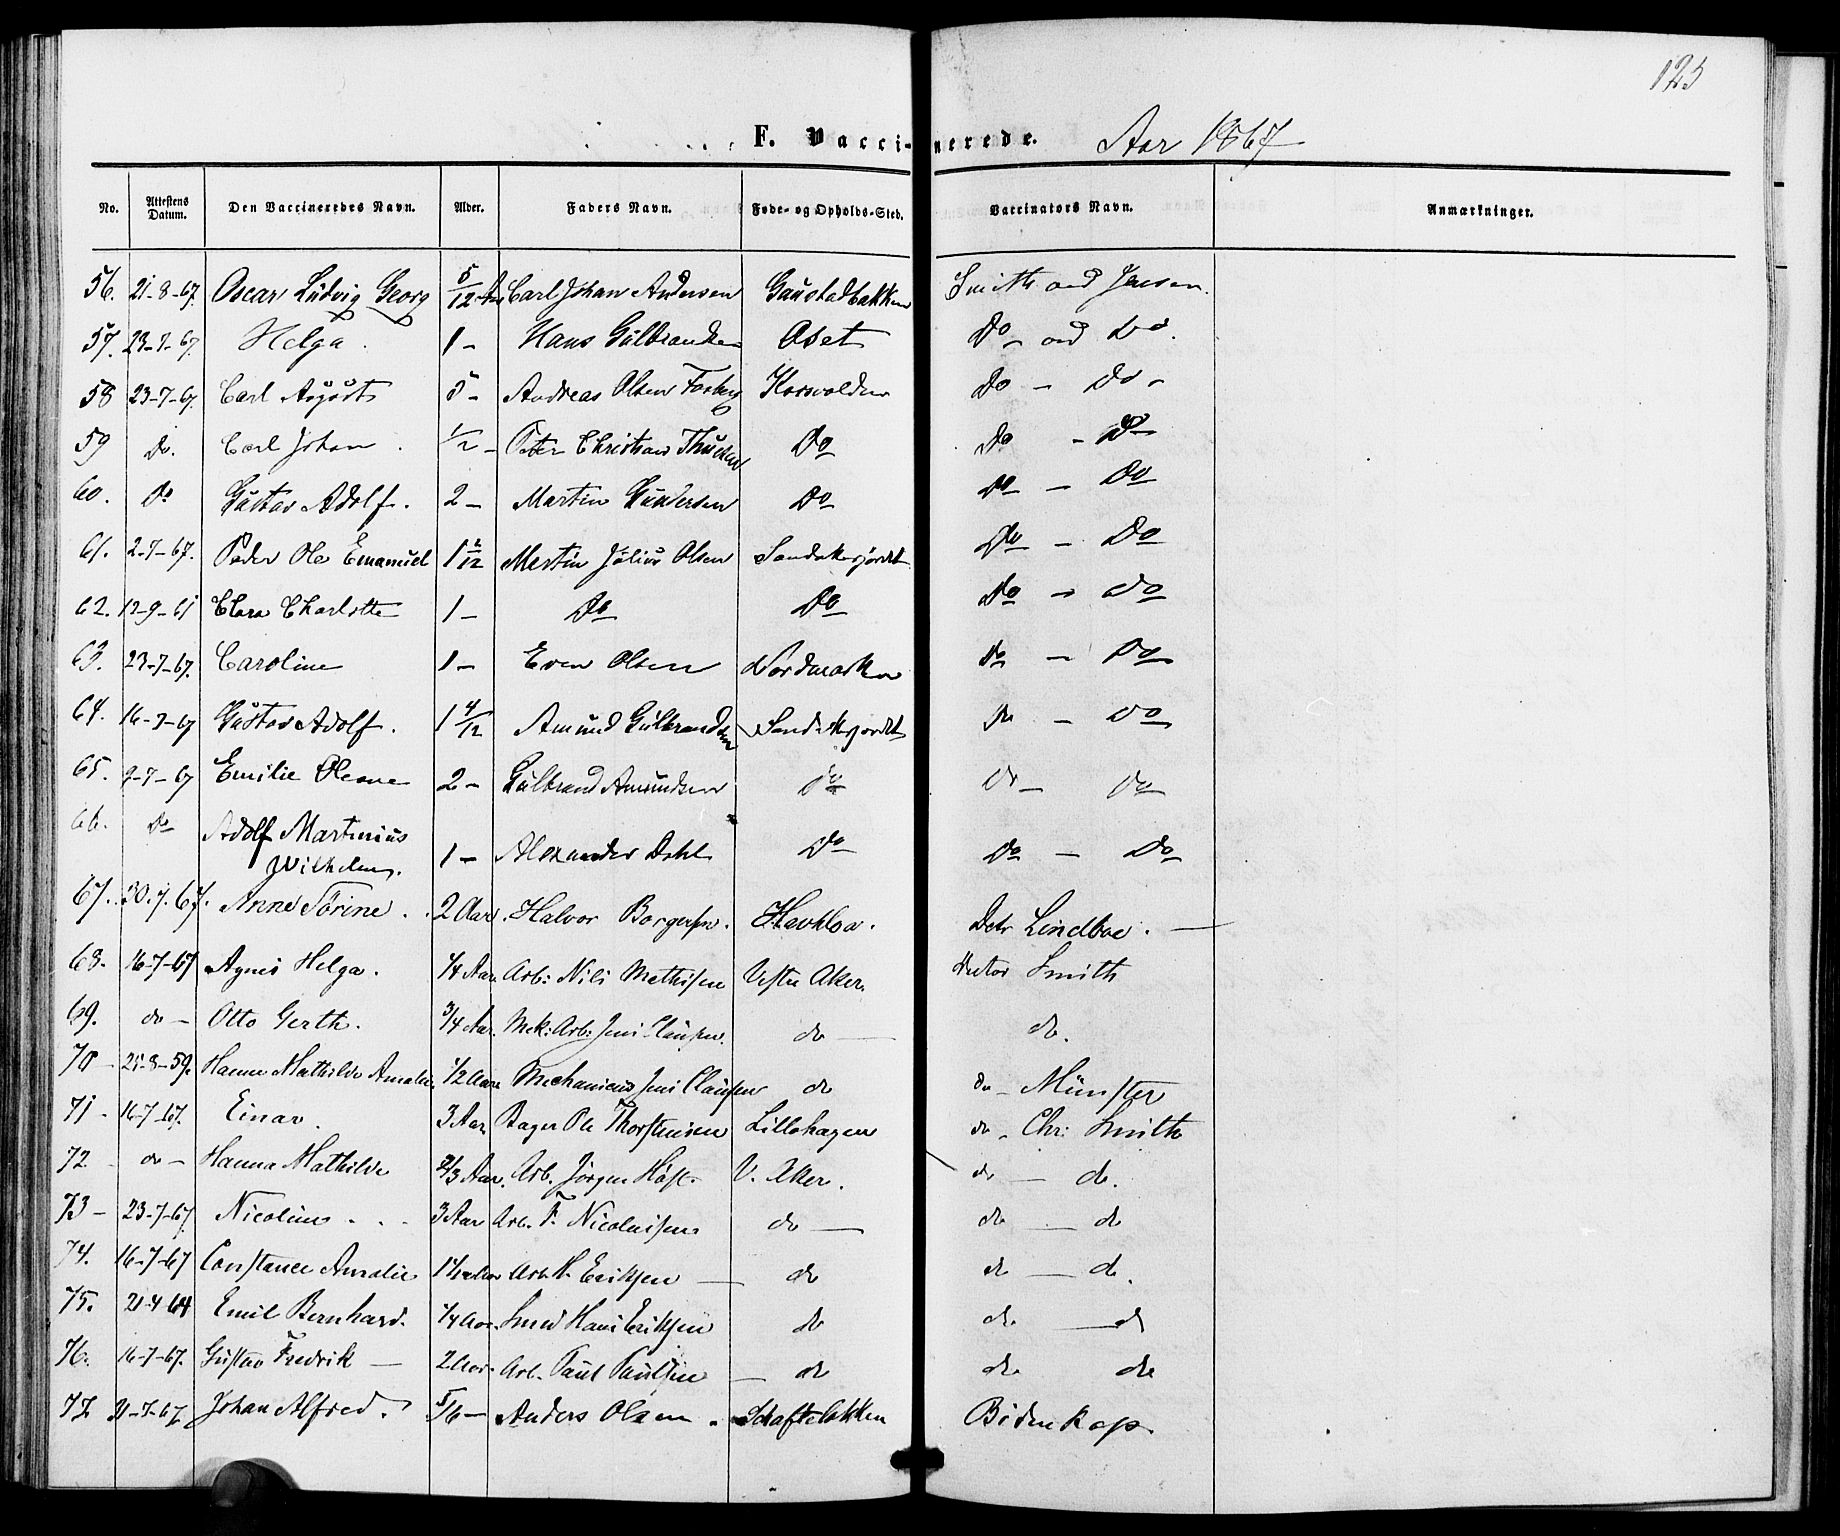 125
F. Vaccinerede. Aar 1867
No. Attestens Datum. Den Vaccineredes Navn. Alder. Faders Navn. Føde- og Opholds-Sted. Vaccinators Navn. Anmærkninger.
56. 21-8-67. Oscar Ludvig Georg 5/12 Aar Carl Johan Andersen Gaustadbakken Smith ved Jensen.
57. 23-7-67. Helga. 1 - Hans Gulbrandsen Aset Do ved Do.
58 23-7-67. Carl August 5 - Andreas Olsen Korsvolden Do - Do -
59 Do. Carl Johan. 1/2 - Peter Christian Do Do - Do
60. Do Gustav Adolf. 2 - Martin Gundersen Do Do - Do
61. 2-7-67. Peder Ole Emanuel 1 2/12 Martin Julius Olsen Sandakerjordet Do - Do
62. 12-9-61 Clara Charlotte 1 - Do Do Do - Do
63. 23-7-67. Caroline 1 - Even Olsen Nordmarken Do - Do
64. 16-7-67 Gustav Adolf. 1 4/12 Amund Gulbrandsen Sandakerjordet Do - Do
65. 9-7-67 Emilie Oleane 2 - Gulbrand Amundsen Do Do - Do
66. Do Adolf Martinius
Wilhelm. 1 - Alexander Dahl Do Do - Do
67. 30.7.67. Anne Torine. 2 Aar. Halvor Borgersen. Havkloa. Doctr Lindboe. -
68. 16-7-67 Agnes Helga. 1/4 Aar. Arb: Nils Mathisen Vestre Aker. Doctor Smith
69. do - Otto Gerth. 3/4 Aar. Mek: Arb: Jens Clausen. do - do.
70 - 25-8-59. Hanne Mathilde Amalie 1/2 Aar Mechanicus Jens Clausen do do - Münster
71 - 16-7-67. Einar. 3 Aar Bager Ole Thorstensen Lillohagen do - Chr: Smith
72 - do - Hanna Mathilde 2/3 Aar. Arb. Jørgen V. Aker. do - do.
73 - 23-7-67. Nicoline... 3 Aar Arb. F. Nicolaisen do - do - do
74. 16-7-67 Constance Amalie 1 1/2 Aar Arb. H. Eriksen - do do - do.
75. 21-4-64 Emil Bernhard. 1/4 Aar. Smed Hans Eriksen do do - do
76. 16-7-67. Gustav Fredrik - 2 Aar. Arb. Paul Paulsen - do do do
77. 31-7-67 Johan Alfred. 5/6 - Anders Olsen. Schafteløkken Bidenkap.